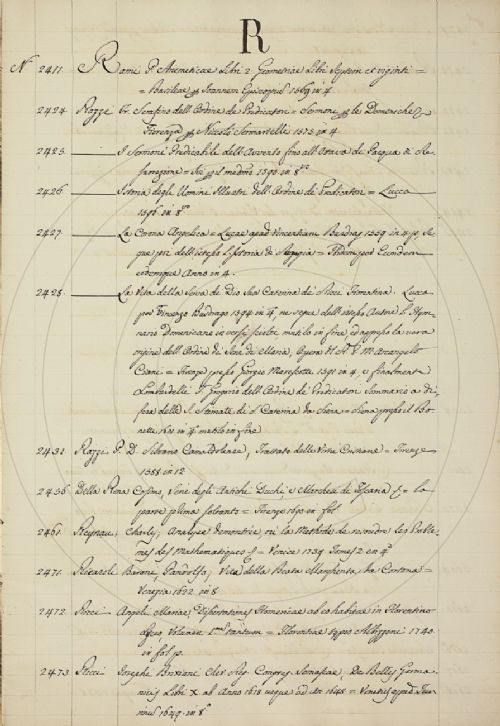 R
N 2411. Rami P. Aritmeticae Libri 2 Geometriae Libri Septem et viginti =
= Basileae per Ioannem Episcopius 1569 in 4
2424 Razzi Fr. Serafino dell'Ordine de Predicatori = Sermone per le Domeniche
Fiorenza per Niccolò 1575 in 4
2425 I Sermoni Predicabili dell'Avvento fino all'Ottava di Pasqua di
= per il medmo 1590 in 8
2426 Istoria degli Uomini Illustri dell'Ordine de Predicatori = Lucca
1596 in 8
2427 La Corona Angelica = Lucae apud Vincentium 1589 in 4
dell'istesso l'Istoria di =
Anno in 4.
2428 La Vita della Serva di Dio Suor Caterina de Ricci Fiorentina. Lucca
per Vincenzo 1594 in 4 dell'istesso Autore L'
Domenicano in versi in fine, ed appresso la vera
origine dell'Ordine di Servi di Maria, Opera M. Arcangelo
Giani = Firenze presso Giorgio Marescotti 1591 in 4, e finalment
Lombardelli F. Gregorio dell'Ordine de Predicatori Sommario a di=
fesa delle S. Stimate di S. Caterina da Siena = Siena presso il Bo=
netti 1601 in 4 in fine
2431 Razzi P. D. Silvano Camaldolense, Trattato delle Virtù Cristiane = Firenze
1588 in 12
2436 Della Rena Cosimo, Serie degli Antichi Duchi e Marchesi di Toscana = la
parte prima solamte = Firenze 1690 in fol.
2461 Reyneau, Charles, Analyse Demontrée, ou la Methode de resoudre les Proble=
mes des Mathematiques = Venise 1739 Tomes 2 in 4
2471 Ricasoli Barone, Pandolfo, Vita della Beata Margherita, da Cortona =
Venezia 1622 in 8
2472 Ricci Angeli Mariae, Dissertationes Homericae ab eo habitae in Florentino
Lyceo, Volumen tantum = Florentiae typis Albizzini 1740
in fol.
2473 Ricci Iosephi Brixiani Cler. Reg. Congreg. Somaschae, De Bellis Germa=
nicis Libri X ab Anno 1618 usque ad An 1648 = Venetiis apud
1649 in 8